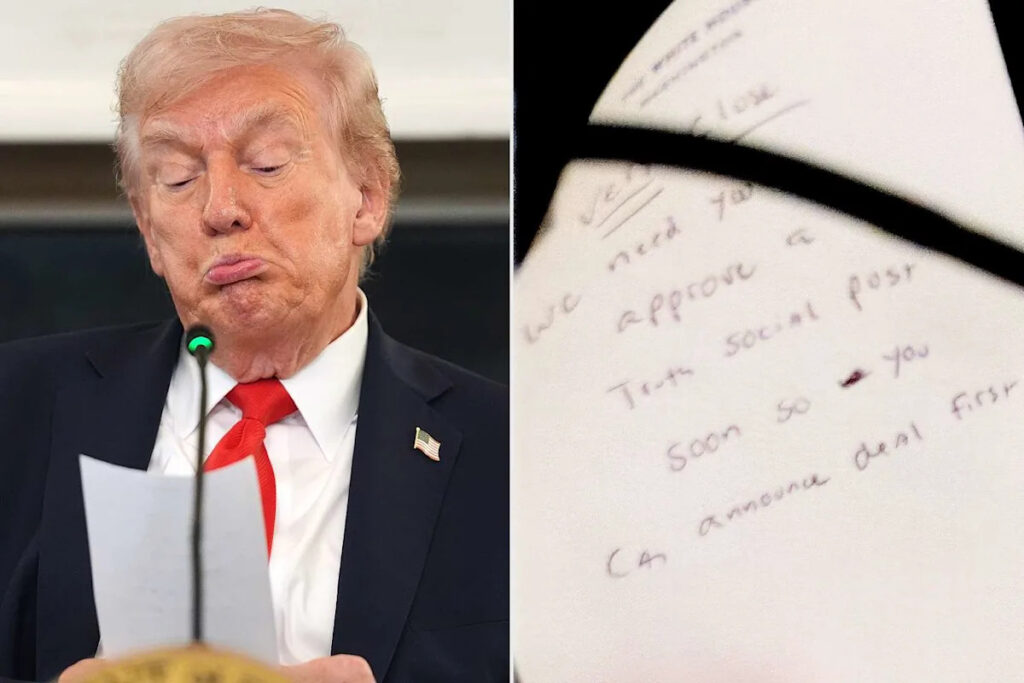 THE WHITE HOUSE
WASHINGTON
Very close
We need you
approve a
Truth social post
soon so you
CAn announce deal first